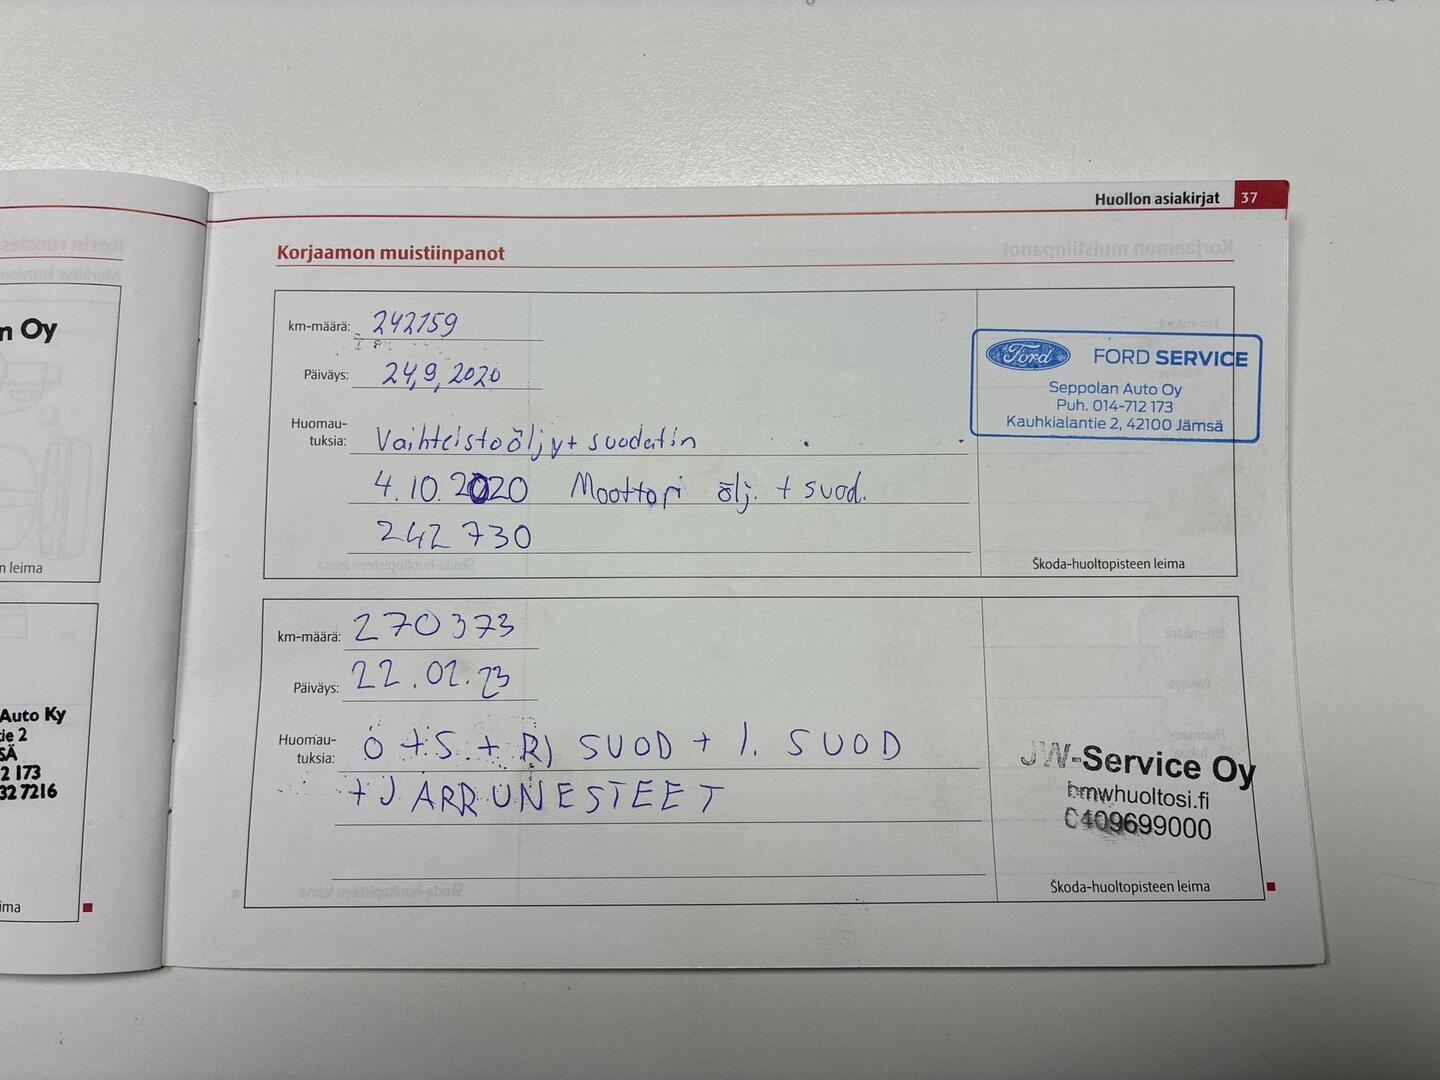 Huollon asiakirjat 37
Korjaamon muistiinpanot
km-määrä: 242159
Päiväys: 24,9,2020
Huomau-
tuksia: Vaihteistoöljy+ suodatin
4.10.2020 Moottori ölj. + suod.
242 730
Ford FORD SERVICE
Seppolan Auto Oy
Puh. 014-712 173
Kauhkialantie 2, 42100 Jämsä
Škoda-huoltopisteen leima
km-määrä: 270373
Päiväys: 22.02.23
Huomau-
tuksia: Ö + S + RJ SUOD + I. SUOD
+ JARRUNESTEET
JW-Service Oy
bmwhuoltosi.fi
0409699000
Škoda-huoltopisteen leima
n Oy
n leima
Auto Ky
tie 2
SÄ
2 173
32 7216
ima